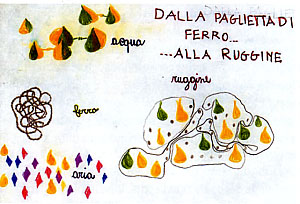 DALLA PAGLIETTA DI
FERRO...
...ALLA RUGGINE
acqua
ruggine
ferro
aria